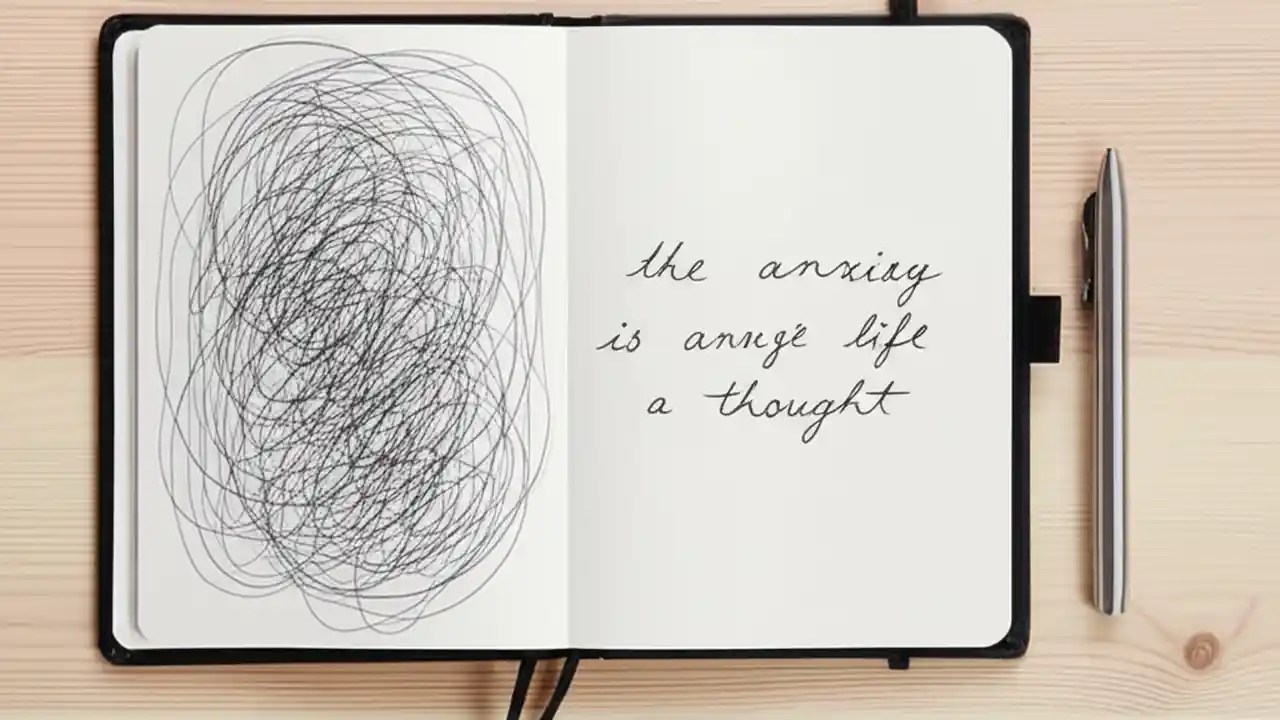 the anxiay
is anxge life
a thought